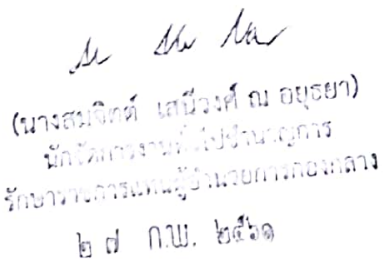 (นางสมจิตต์ เสนีวงศ์ ณ อยุธยา)
นักจัดการงานทั่วไปชำนาญการ
รักษาราชการแทนผู้อำนวยการกองกลาง
๒๗ ก.พ. ๒๕๖๑